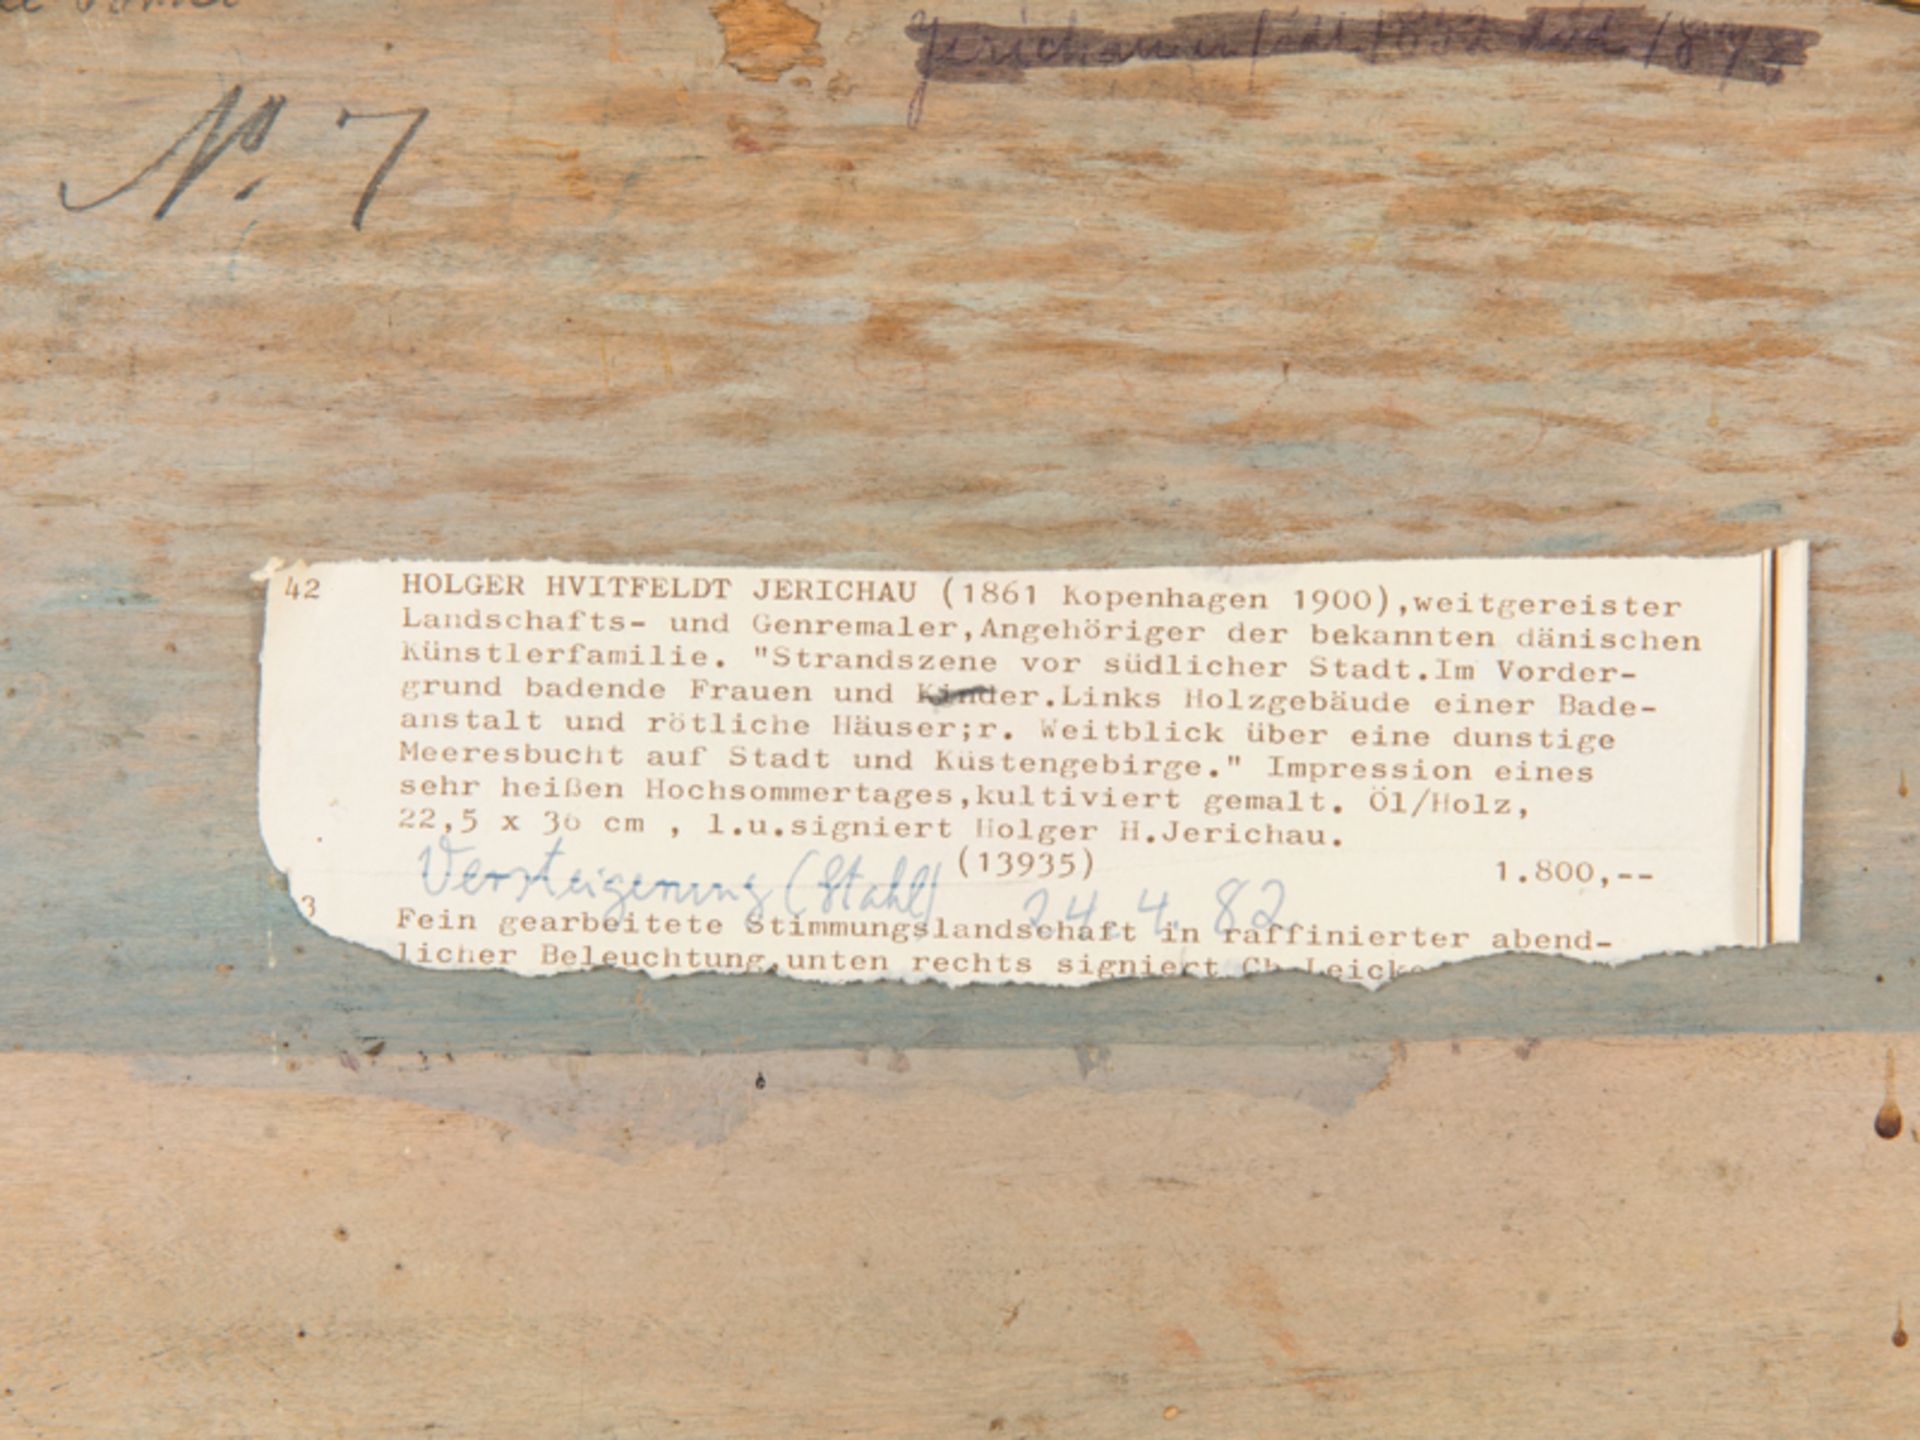 Jerichau født 1852 død 18
No. 7
42 HOLGER HVITFELDT JERICHAU (1861 Kopenhagen 1900),weitgereister
Landschafts- und Genremaler,Angehöriger der bekannten dänischen
Künstlerfamilie. "Strandszene vor südlicher Stadt.Im Vorder-
grund badende Frauen und Kinder.Links Holzgebäude einer Bade-
anstalt und rötliche Häuser;r. Weitblick über eine dunstige
Meeresbucht auf Stadt und Küstengebirge." Impression eines
sehr heißen Hochsommertages,kultiviert gemalt. Öl/Holz,
22,5 x 36 cm , l.u.signiert Holger H.Jerichau.
(13935) 1.800,--
Versteigerung (Stahl) 24.4.82.
3 Fein gearbeitete Stimmungslandschaft in raffinierter abend-
licher Beleuchtung,unten rechts signiert Ch.Leick